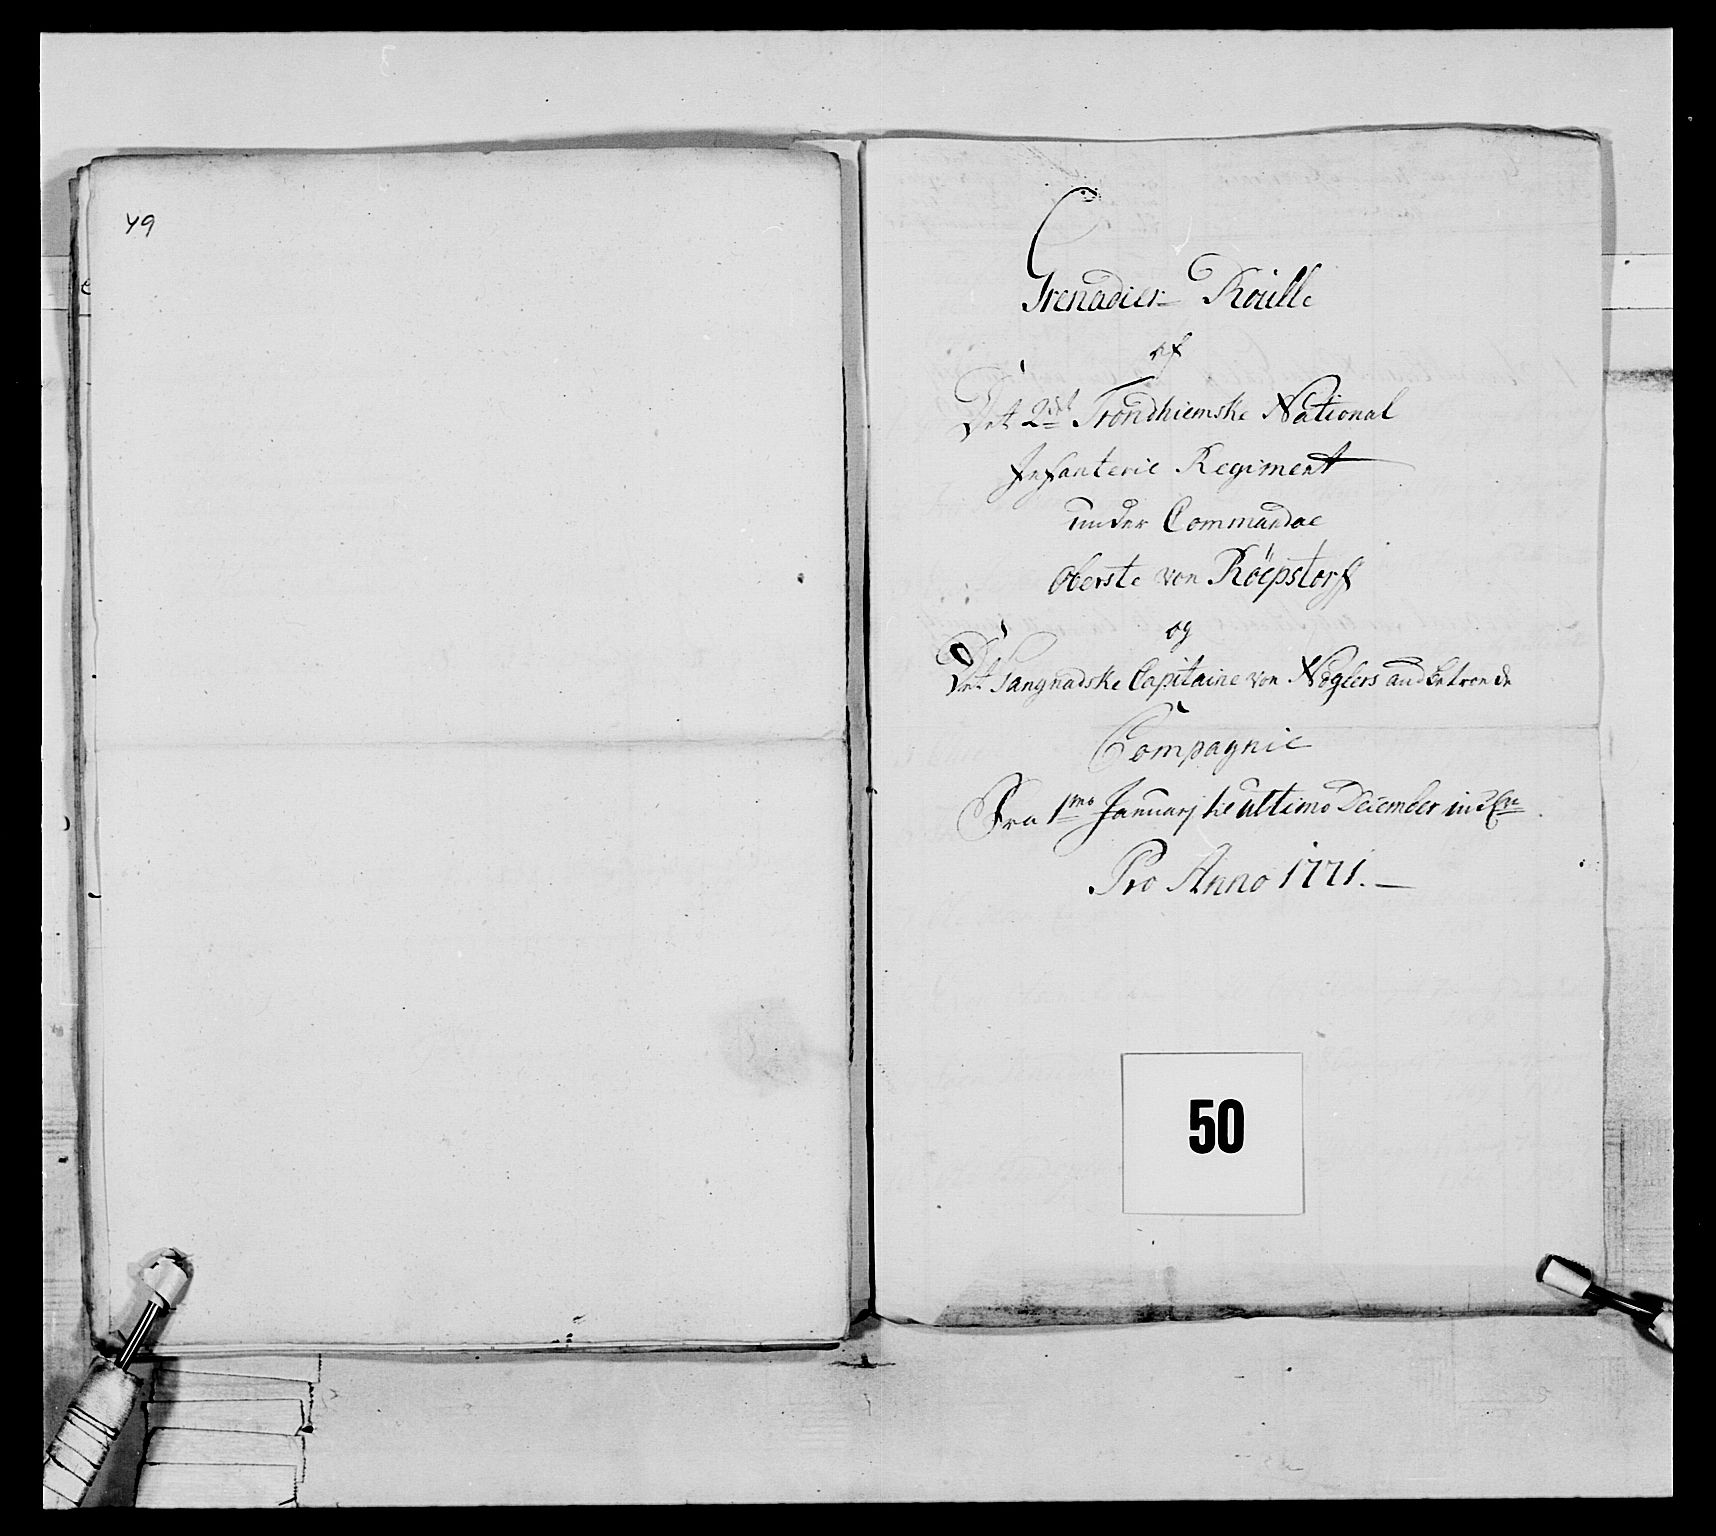 49
Grenadeer Roulle
af
Det 2det Trondhiemske National
Infanterie Regiment
under Commando
Oberste von Röepstorff
og
Det Tangnadske Capitaine von Nøglers andbetroede
Compagnie
Fra 1mo Januarj til ultimo December
Pro Anno 1771.
50